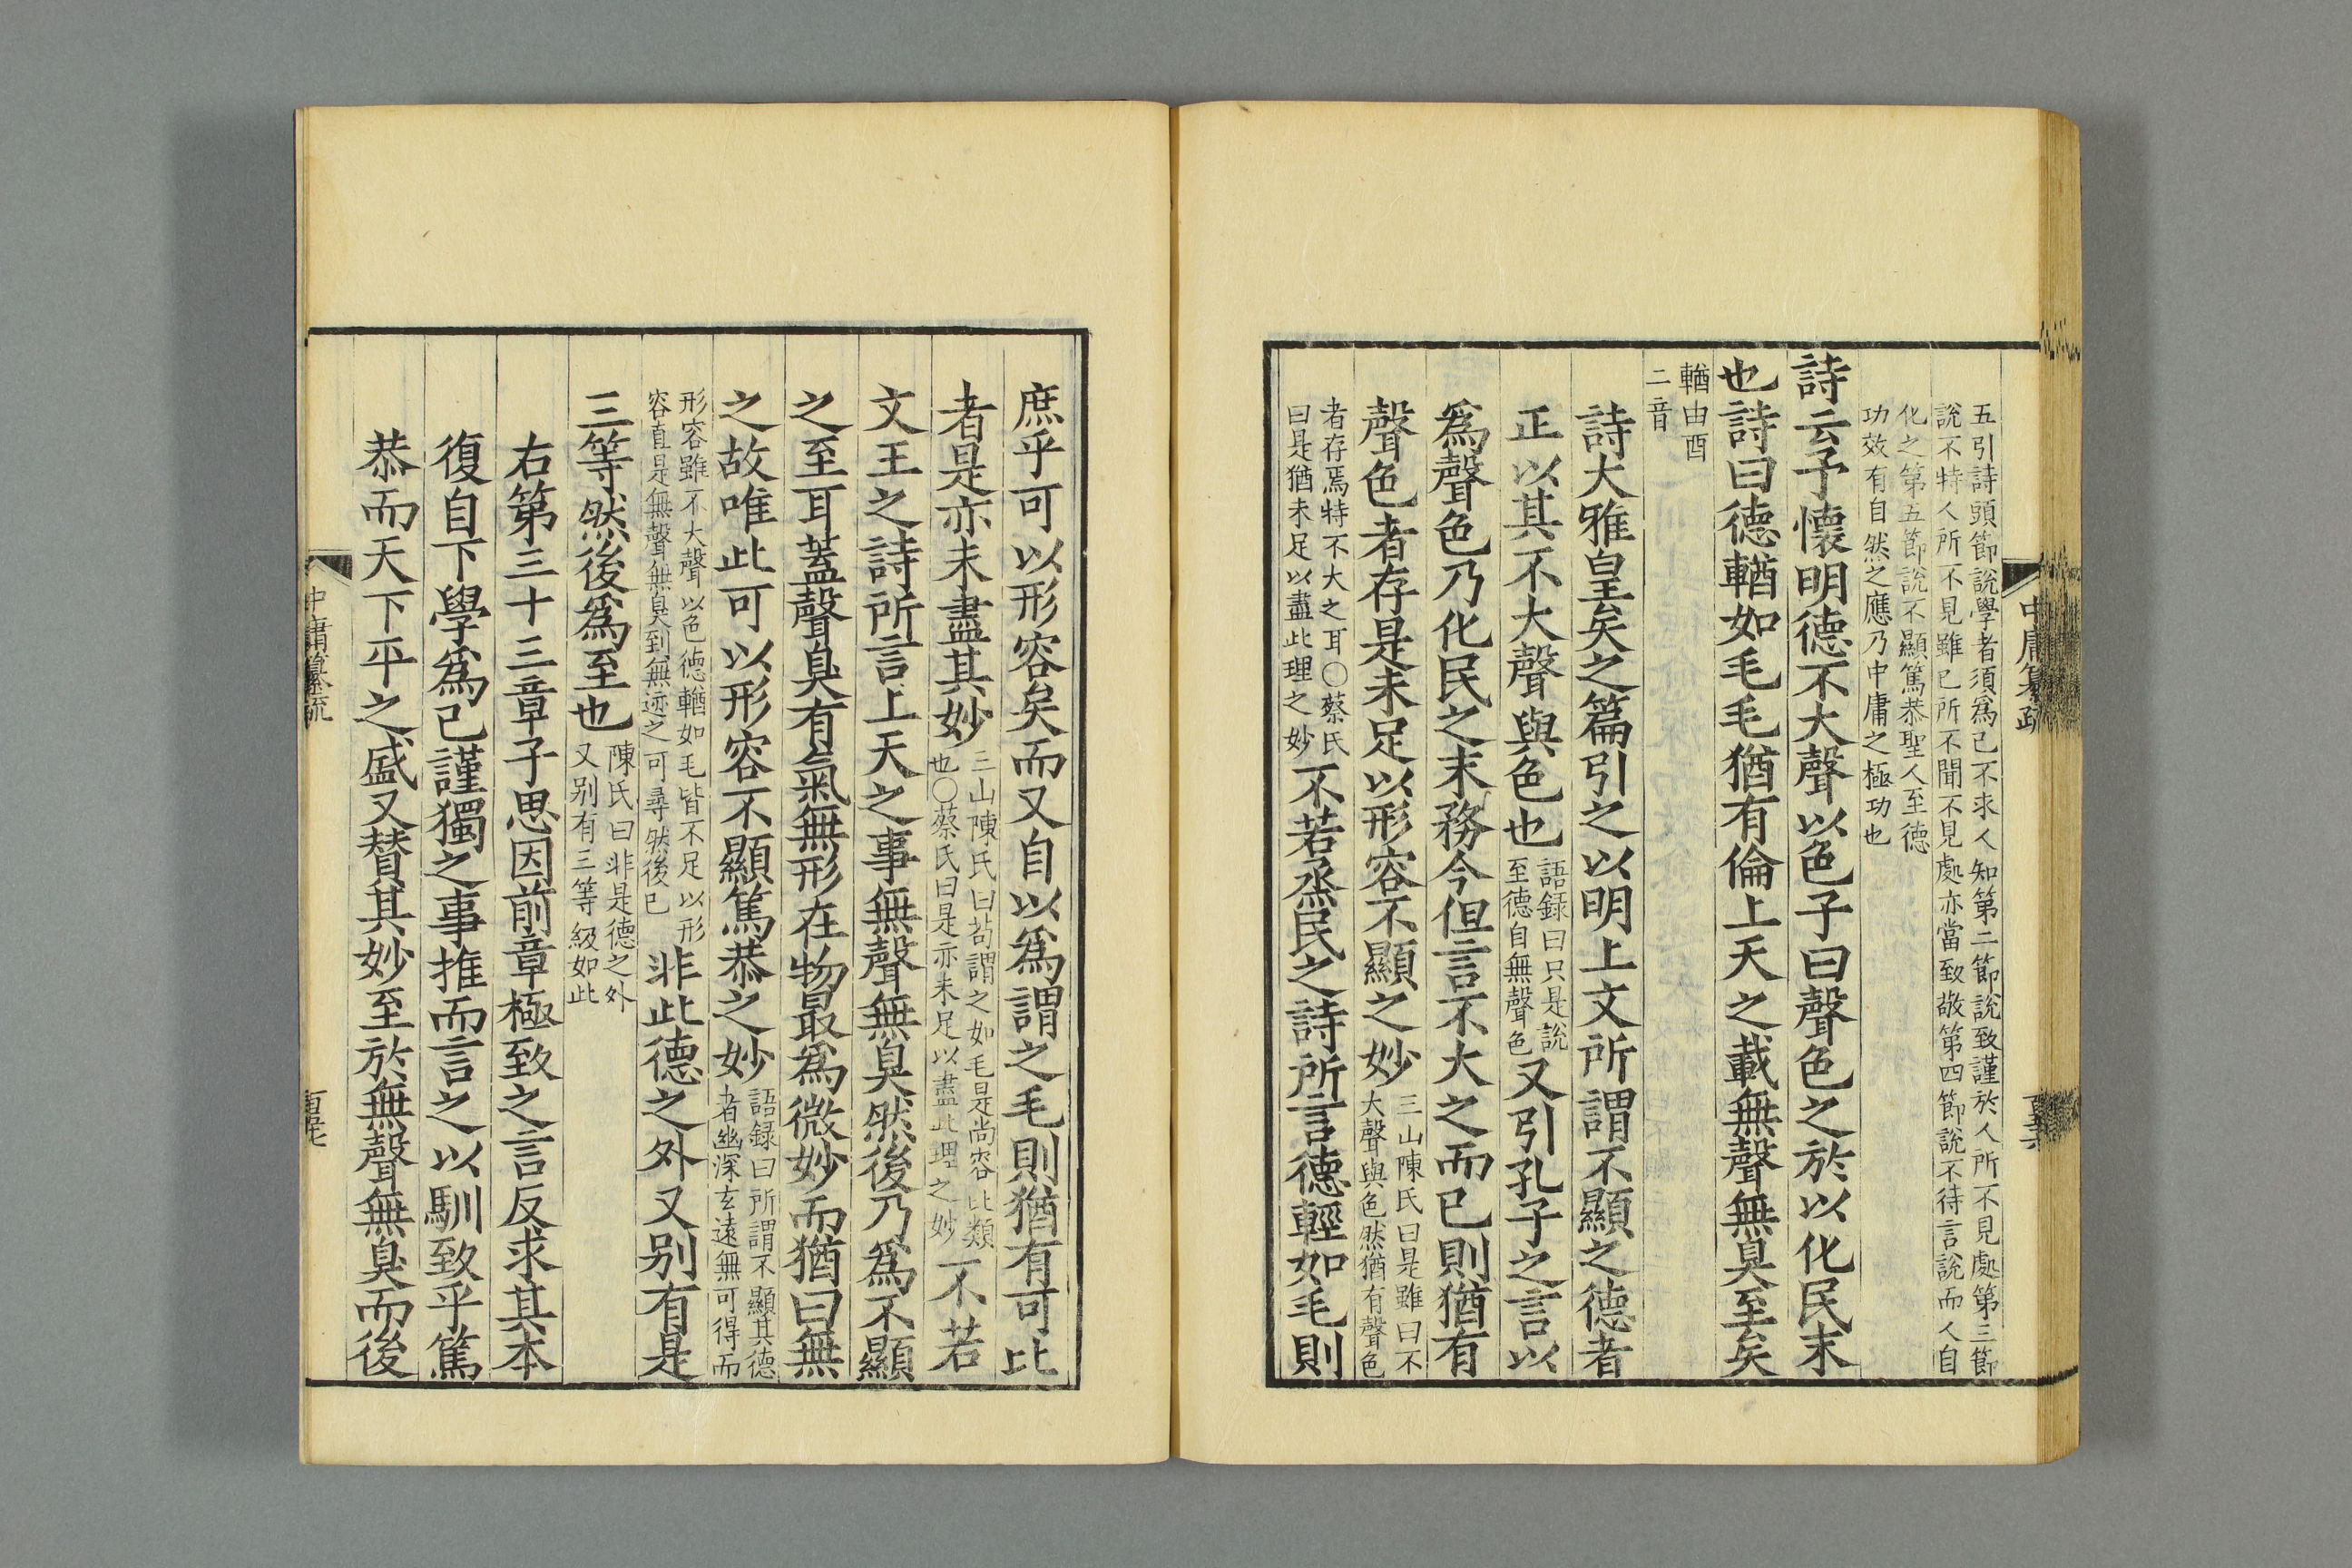 五引詩頭節說學者須爲己不求人知第二節說致謹於人所不見處第三節
說不特人所不見雖己所不聞不見處亦當致敬第四節說不待言說而人自
化之第五節說不顯篤恭聖人至德
功效有自然之應乃中庸之極功也
詩云予懷明德不大聲以色子曰聲色之於以化民末
也詩曰德輶如毛毛猶有倫上天之載無聲無臭至矣
輶由酉
二音
詩大雅皇矣之篇引之以明上文所謂不顯之德者
正以其不大聲與色也
語録曰只是說
至德自無聲色
又引孔子之言以
爲聲色乃化民之末務今但言不大之而已則猶有
聲色者存是未足以形容不顯之妙
三山陳氏曰是雖曰不
大聲與色然猶有聲色
者存焉特不大之耳○蔡氏
曰是猶未足以盡此理之妙
不若烝民之詩所言德輕如毛則
庶乎可以形容矣而又自以爲謂之毛則猶有可比
者是亦未盡其妙
三山陳氏曰苟謂之如毛是尚容比類
也○蔡氏曰是亦未足以盡此理之妙
不若
文王之詩所言上天之事無聲無臭然後乃爲不顯
之至耳蓋聲臭有氣無形在物最爲微妙而猶曰無
之故唯此可以形容不顯篤恭之妙
語録曰所謂不顯其德
者幽深玄遠無可得而
形容雖不大聲以色德輶如毛皆不足以形
容直是無聲無臭到無迹之可尋然後已
非此德之外又别有是
三等然後爲至也
陳氏曰非是德之外
又别有三等級如此
右第三十三章子思因前章極致之言反求其本
復自下學爲己謹獨之事推而言之以馴致乎篤
恭而天下平之盛又贊其妙至於無聲無臭而後
中庸纂疏